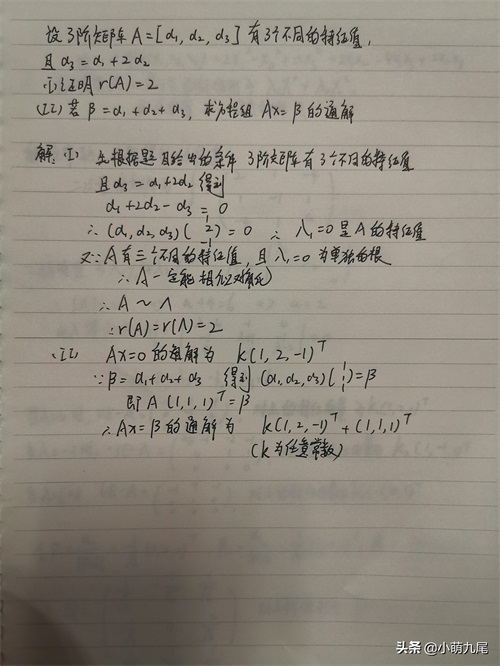 设3阶矩阵A=[α₁,α₂,α₃]有3个不同的特征值,
且α₃=α₁+2α₂
(I)证明r(A)=2
(II)若β=α₁+α₂+α₃,求方程组Ax=β的通解
解:(I) 先根据题目给出的条件 3阶矩阵有3个不同的特征值
且α₃=α₁+2α₂得到
α₁+2α₂-α₃=0
∴(α₁,α₂,α₃)(1 2 -1)=0 ∴λ₁=0是A的特征值
又∵A有三个不同的特征值,且λ₁=0为单独的根
∴A一定能相似对角化
∴A~Λ
∴r(A)=r(Λ)=2
(II) Ax=0的通解为 k(1,2,-1)ᵀ
∵β=α₁+α₂+α₃ 得到(α₁,α₂,α₃)(1 1 1)=β
即A(1,1,1)ᵀ=β
∴Ax=β的通解为 k(1,2,-1)ᵀ+(1,1,1)ᵀ
(k为任意常数)
头条@小萌九尾